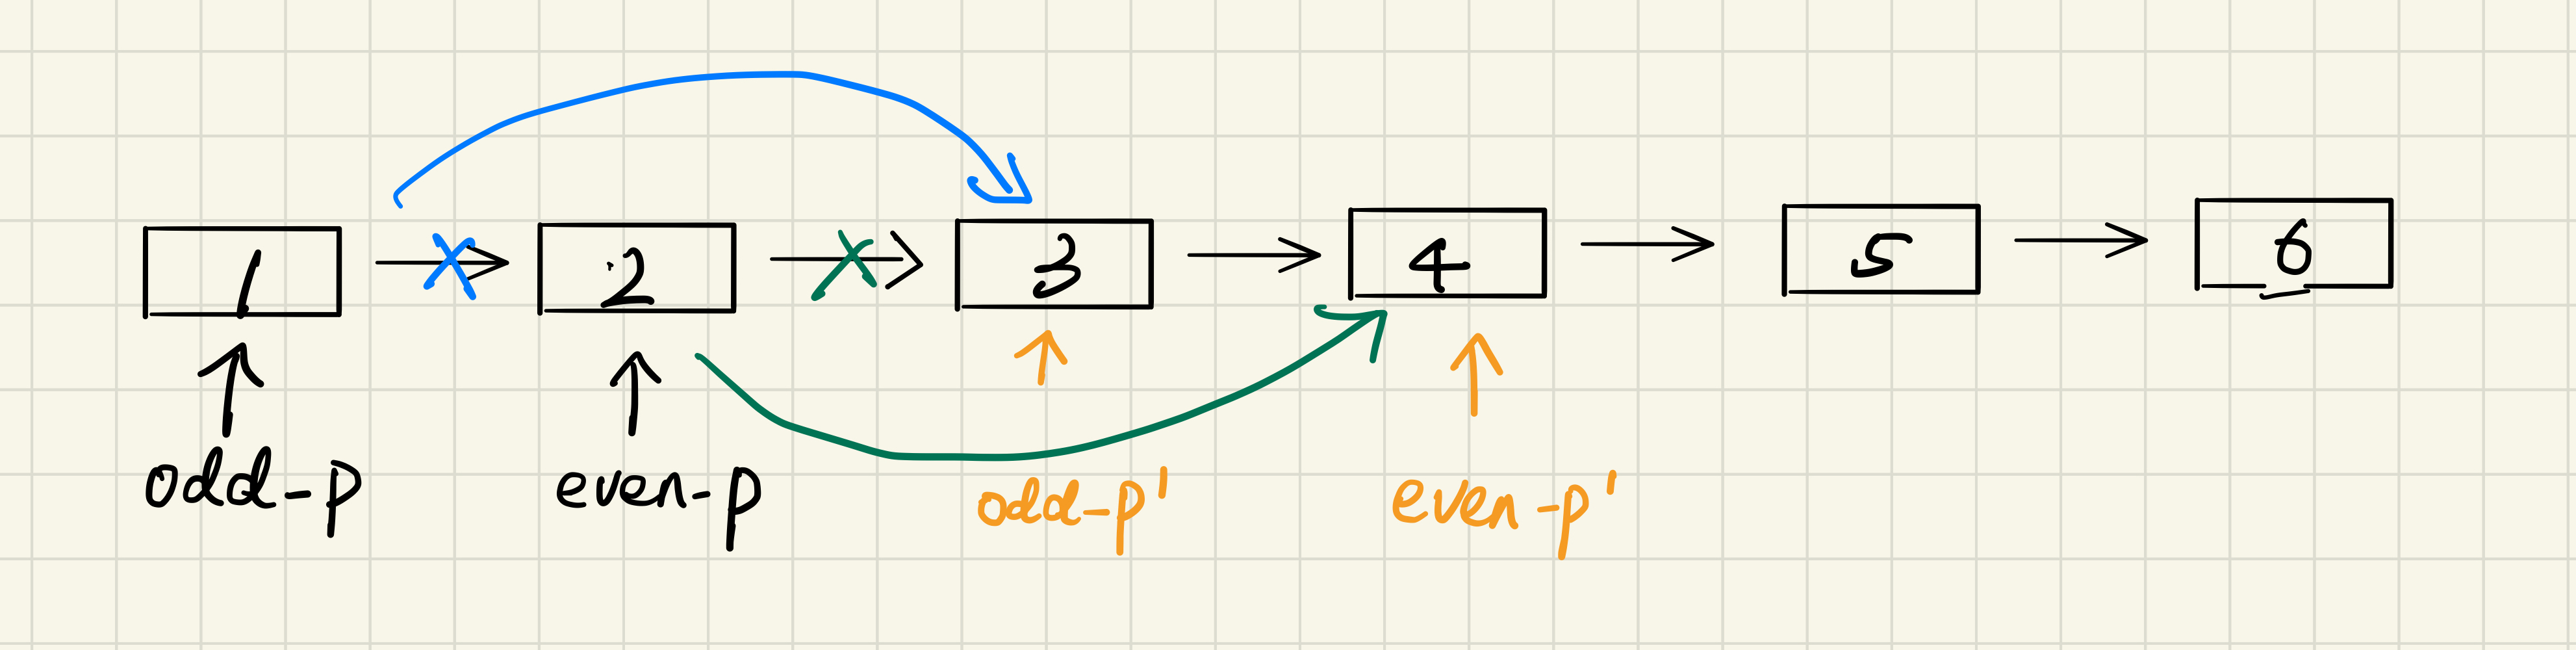 1 2 3 4 5 6
odd-p even-p odd-p' even-p'